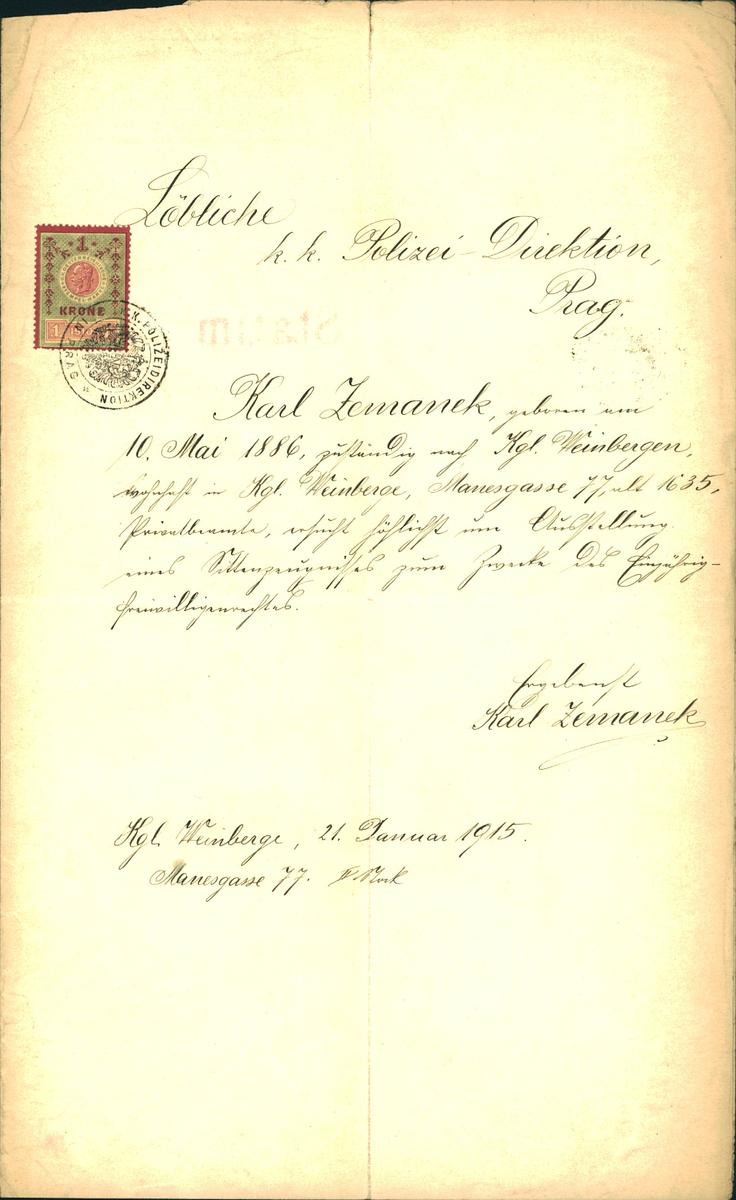 Löbliche
k. k. Polizei-Direktion,
Prag.
1
KRONE
1
K. K. POLIZEIDIREKTION IN PRAG
Statim
Karl Zemanek, geboren am
10. Mai 1886, zuständig nach Kgl. Weinbergen,
wohnhaft in Kgl. Weinberge, Manesgasse 77, alt 1635,
Privatbeamte, ersucht höflichst um Ausstellung
eines Sittenzeugnisses zum Zwecke des Einjährig-
freiwilligenrechtes.
Ergebenst
Karl Zemanek
Kgl. Weinberge, 21. Januar 1915.
Manesgasse 77. Stock